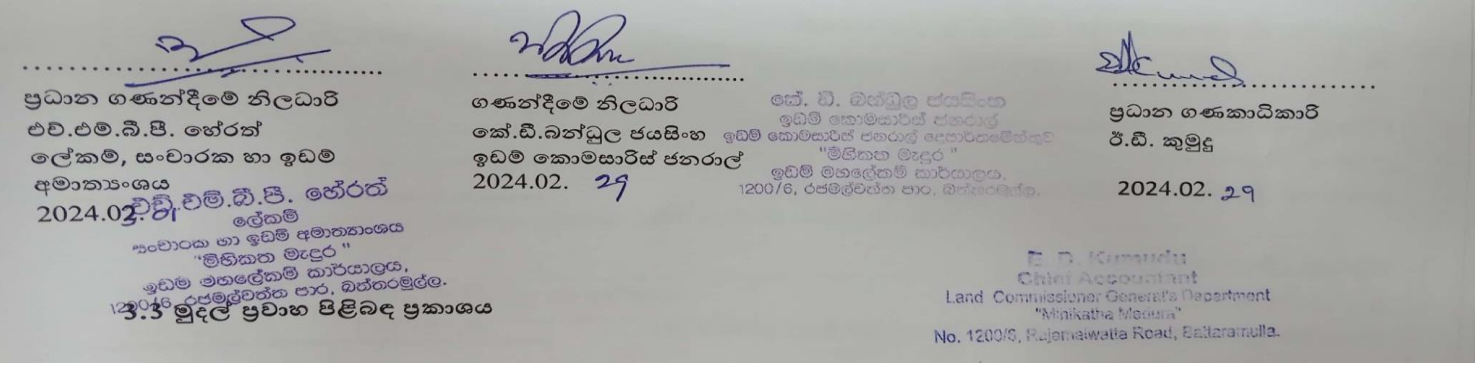 ප්‍රධාන ගණන්දීමේ නිලධාරි
එච්.එම්.බී.පී. හේරත්
ලේකම්, සංචාරක හා ඉඩම්
අමාත්‍යංශය
2024.02.
එච්.එම්.බී.පී. හේරත්
ලේකම්
සංචාරක හා ඉඩම් අමාත්‍යාංශය
"මිහිකත මැදුර"
ඉඩම් මහලේකම් කාර්යාලය,
1200/6, රජමල්වත්ත පාර, බත්තරමුල්ල.
3.3 මුදල් ප්‍රවාහ පිළිබඳ ප්‍රකාශය
ගණන්දීමේ නිලධාරි
කේ.ඩී.බන්ධුල ජයසිංහ
ඉඩම් කොමසාරිස් ජනරාල්
2024.02. 29
කේ. ඩී. බන්ධුල ජයසිංහ
ඉඩම් කොමසාරිස් ජනරාල්
ඉඩම් කොමසාරිස් ජනරාල් දෙපාර්තමේන්තුව
"මිහිකත මැදුර"
ඉඩම් මහලේකම් කාර්යාලය,
1200/6, රජමල්වත්ත පාර, බත්තරමුල්ල.
ප්‍රධාන ගණකාධිකාරි
ඊ.ඩී. කුමුදු
2024.02. 29
E. D. Kumudu
Chief Accountant
Land Commissioner General's Department
"Mihikatha Medura"
No. 1200/6, Rajamalwatta Road, Battaramulla.